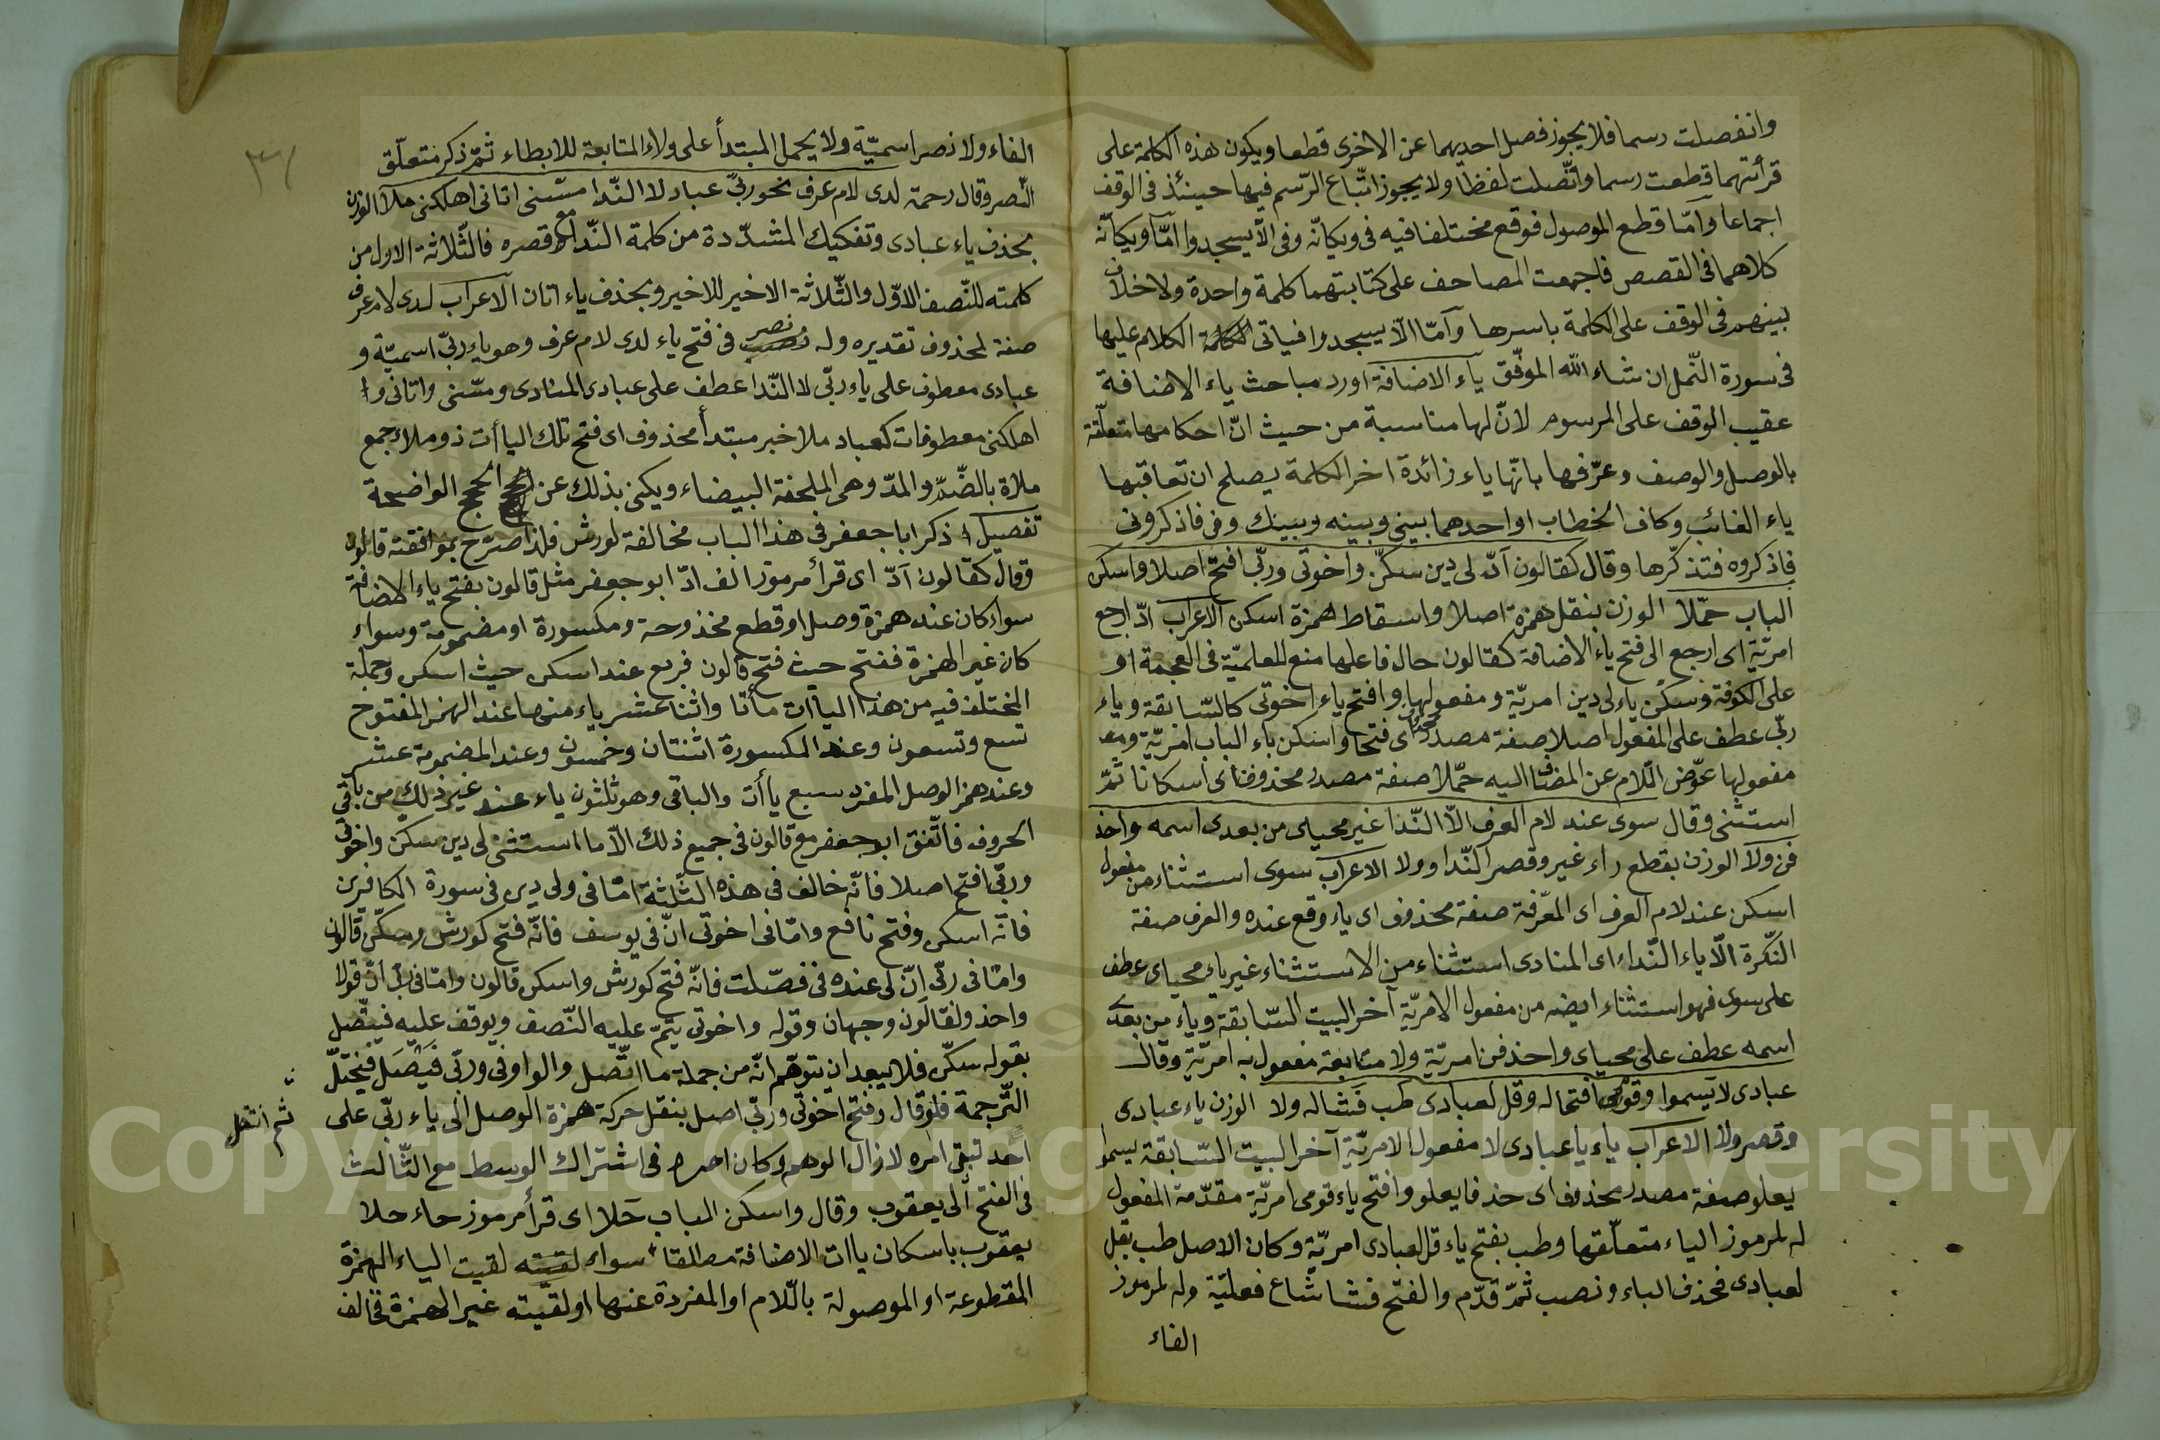 وانفصلت رسما فلا يجوز فصل احديهما عن الاخرى قطعا ويكون هذه الكلمة على
قرأتهما قطعت رسما واتّصلت لفظا ولا يجوز اتّباع الرّسم فيها حينئذ فى الوقف
اجماعا وامّا قطع الموصول فوقع مختلفا فيه فى ويكانّه وفى الّا يسجدوا امّا ويكانّه
كلاهما فى القصص فاجمعت المصاحف على كتابتهما كلمة واحدة ولا خلاف
بينهم فى الوقف على الكلمة باسرها وامّا الّا يسجدوا فياتى الكلام عليها
فى سورة النّمل ان شاء الله الموفّق ياء الاضافة اورد مباحث ياء الاضافة
عقيب الوقف على المرسوم لانّ لها مناسبة من حيث انّ احكامها متعلّقة
بالوصل والوصف وعرّفها بانّها ياء زائدة اخر الكلمة يصلح ان تعاقبها
ياء الغائب وكاف الخطاب او احدهما بينى وبينه وبينك وفى فاذكرونى
فاذكروه فتذكّرها وقال كقالون ادّ لى دين سكّن واخوتى وربّى افتح اصلا واسكن
الباب حمّلا الوزن بنقل همزة اصلا واسقاط همزة اسكن الاعراب ادّ ارجع
امريّة اى ارجع الى فتح ياء الاضافة كقالون حال فاعلها منع للعلميّة فى العجمة او
على الكوفة وسكّن ياء لى دين امريّة ومفعولها وافتح ياء اخوتى كالسّابقة وياء
ربّى عطف على المفعول اصلا صفة مصدر محذوف اى فتحا واسكن ياء الباب امريّة ومع
مفعولها عوّض اللّام عن المضاف اليه حمّلا صفة مصدر محذوف اى اسكانا ثمّ
استثنى وقال سوى عند لام العرف الّا النّدا غير محياى من بعدى اسمه واحذ
فن ولا الوزن بقطع راء غير وقصر النّدا وولا الاعراب سوى استثناء من مفعول
اسكن عند لام العرف اى المعّرفة صفة محذوف اى ياء وقع عنده والعرف صفة
النّكرة الّا ياء النّداء اى المنادى استثناء من الاستثناء غير ياء محياى عطف
على سوى فهو استثناء ايضه من مفعول الامريّة آخر البيت السّابقة وياء من بعدى
اسمه عطف على محياى واحذفن امريّة ولا متابعة مفعول به امريّة وقال
عبادى لا يسموا وقومى افتحا له وقل لعبادى طب فشا له ولا الوزن ياء عبادى
وقصر ولا الاعراب ياء يا عبادى لا مفعول الامريّة آخر البيت السّابقة يسموا
يعلو صفة مصدر محذوف اى حذفا يعلو وافتح ياء قومى امريّة مقدّمة المفعول
له لمرموز الياء متعلّقها وطب بفتح ياء قل لعبادى امريّة وكان الاصل طب بقل
لعبادى فحذف الباء ونصب ثمّ قدّم والفتح فشا شاع فعليّة وله لمرموز
الفاء
الفاء ولا نصر اسميّة ولا يحمل المبتدأ على ولاء المتابعة للابطاء ثمّ ذكر متعلّق
النّصر وقال رحمة لدى لام عرف نحو ربّى عباد لا النّدا مسّنى اتانى اهلكنى ملا الوزن
بحذف ياء عبادى وتفكيك المشدّدة من كلمة النّدا مع قصره فالثّلاثة الاول من
كلمته للنّصف الاوّل والثّلاثة الاخير للاخير وبحذف ياء اتان الاعراب لدى لام عرف
صفة لمحذوف تقديره وله نصر فى فتح ياء لدى لام عرف وهو ياء ربّى اسميّة و
عبادى معطوف على ياء ربّى لا النّدا عطف على عبادى المنادى ومسّنى واتانى وا
اهلكنى معطوفات كعباد ملا خبر مبتدأ محذوف اى فتح تلك الياأت ذو ملاء جمع
ملاة بالضّمّ والمدّ وهى الملحفة البيضاء ويكنى بذلك عن الحجج الواضحة
تفصيل ذكر ابا جعفر فى هذا الباب مخالفة لورش فلذا صرّح بموافقته قالون
وقال كقالون ادّ اى قرأ مرموز الف ادّ ابو جعفر مثل قالون بفتح ياء الاضافة
سواء كان عند همزة وصل او قطع مفتوحة ومكسورة او مضمومة وسواء
كان غير الهمزة ففتح حيث فتح قالون فربع عند اسكن حيث اسكن وجملة
المختلف فيه من هذا الياات مأتا واثنا عشر ياء منها عند الهمز المفتوح
تسع وتسعون وعند المكسورة اثنتان وخمسون وعند المضمومة عشر
وعند همز الوصل المفرد سبع ياأت والباقى وهو ثلثون ياء عند غير ذلك من باقى
الحروف فاتّفق ابو جعفر مع قالون فى جميع ذلك الّا ما استثنى لى دين سكّن واخوتى
وربّى افتح اصلا فانّه خالف فى هذه الثّلثة امّا فى ولى دين فى سورة الكافرين
فانّه اسكن وفتح نافع وامّا فى اخوتى انّ فى يوسف فانّه فتح كورش وسكّن قالون
وامّا فى ربّى انّ لى عنده فى فصّلت فانّه فتح كورش واسكن قالون وامّا فى باب ادّ قولا
واحذ ولقالون وجهان وقوله واخوتى يتمّ عليه النّصف ويوقف عليه فيتّصل
بقوله سكّن فلا يبعد ان يتوهّم انّه من جملة ما اتّصل والواو فى وربّى فيصل فيختلّ
التّرجمة فلو قال وفتح اخوتى وربّى اصل بنقل حركة همزة الوصل الى ياء ربّى على
احد تبقى امره لازال الوهم وكان اصرح فى اشتراك الوسط مع الثّالث
فى الفتح الى يعقوب وقال واسكن الباب حلا اى قرأ مرموز حاء حلا
يعقوب باسكان ياات الاضافة مطلقا سواء لقيته لقيت الياء الهمزة
المقطوعة او الموصولة باللّام او المفردة عنها او لقيته غير الهمزة فخالف
ثم انتقل